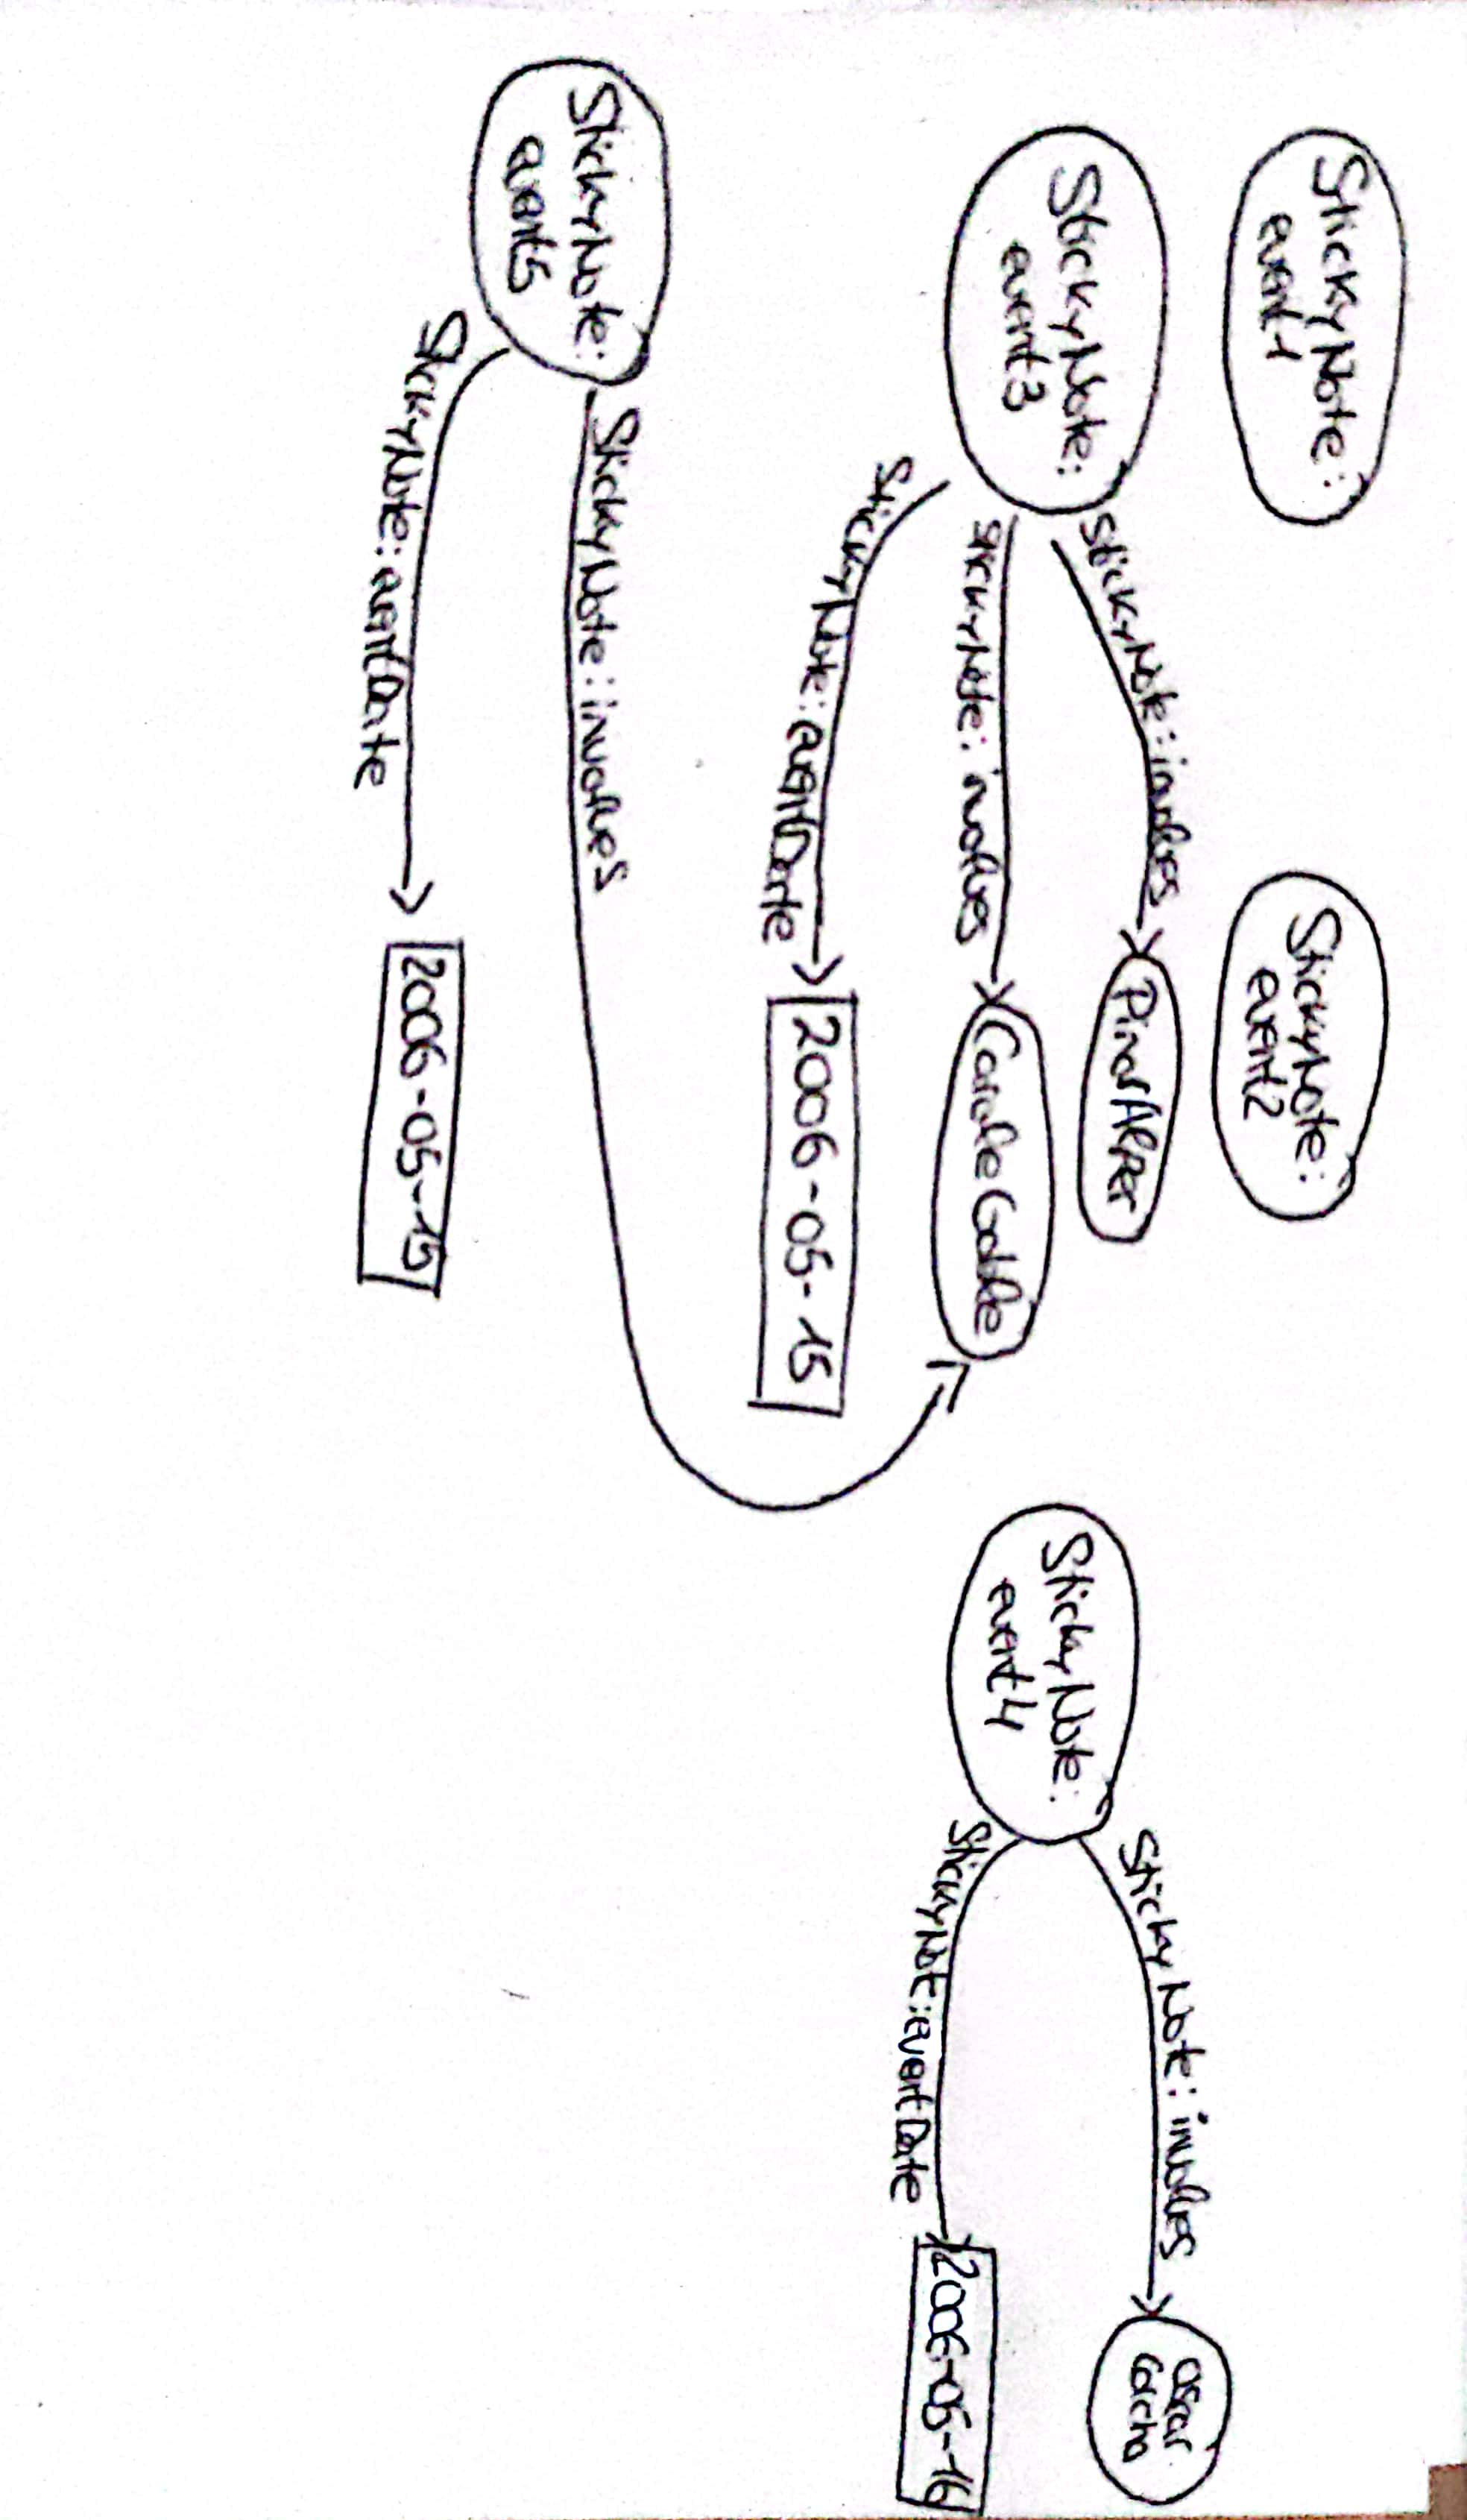 StickyNote:
event1
StickyNote:
event2
StickyNote:
event3
StickyNote:involves
PinarAlper
StickyNote:involves
CaroleGoble
StickyNote:eventDate
2006-05-15
StickyNote:
event4
StickyNote:involves
Oscar
Corcho
StickyNote:eventDate
2006-05-16
StickyNote:
event5
StickyNote:involves
StickyNote:eventDate
2006-05-15